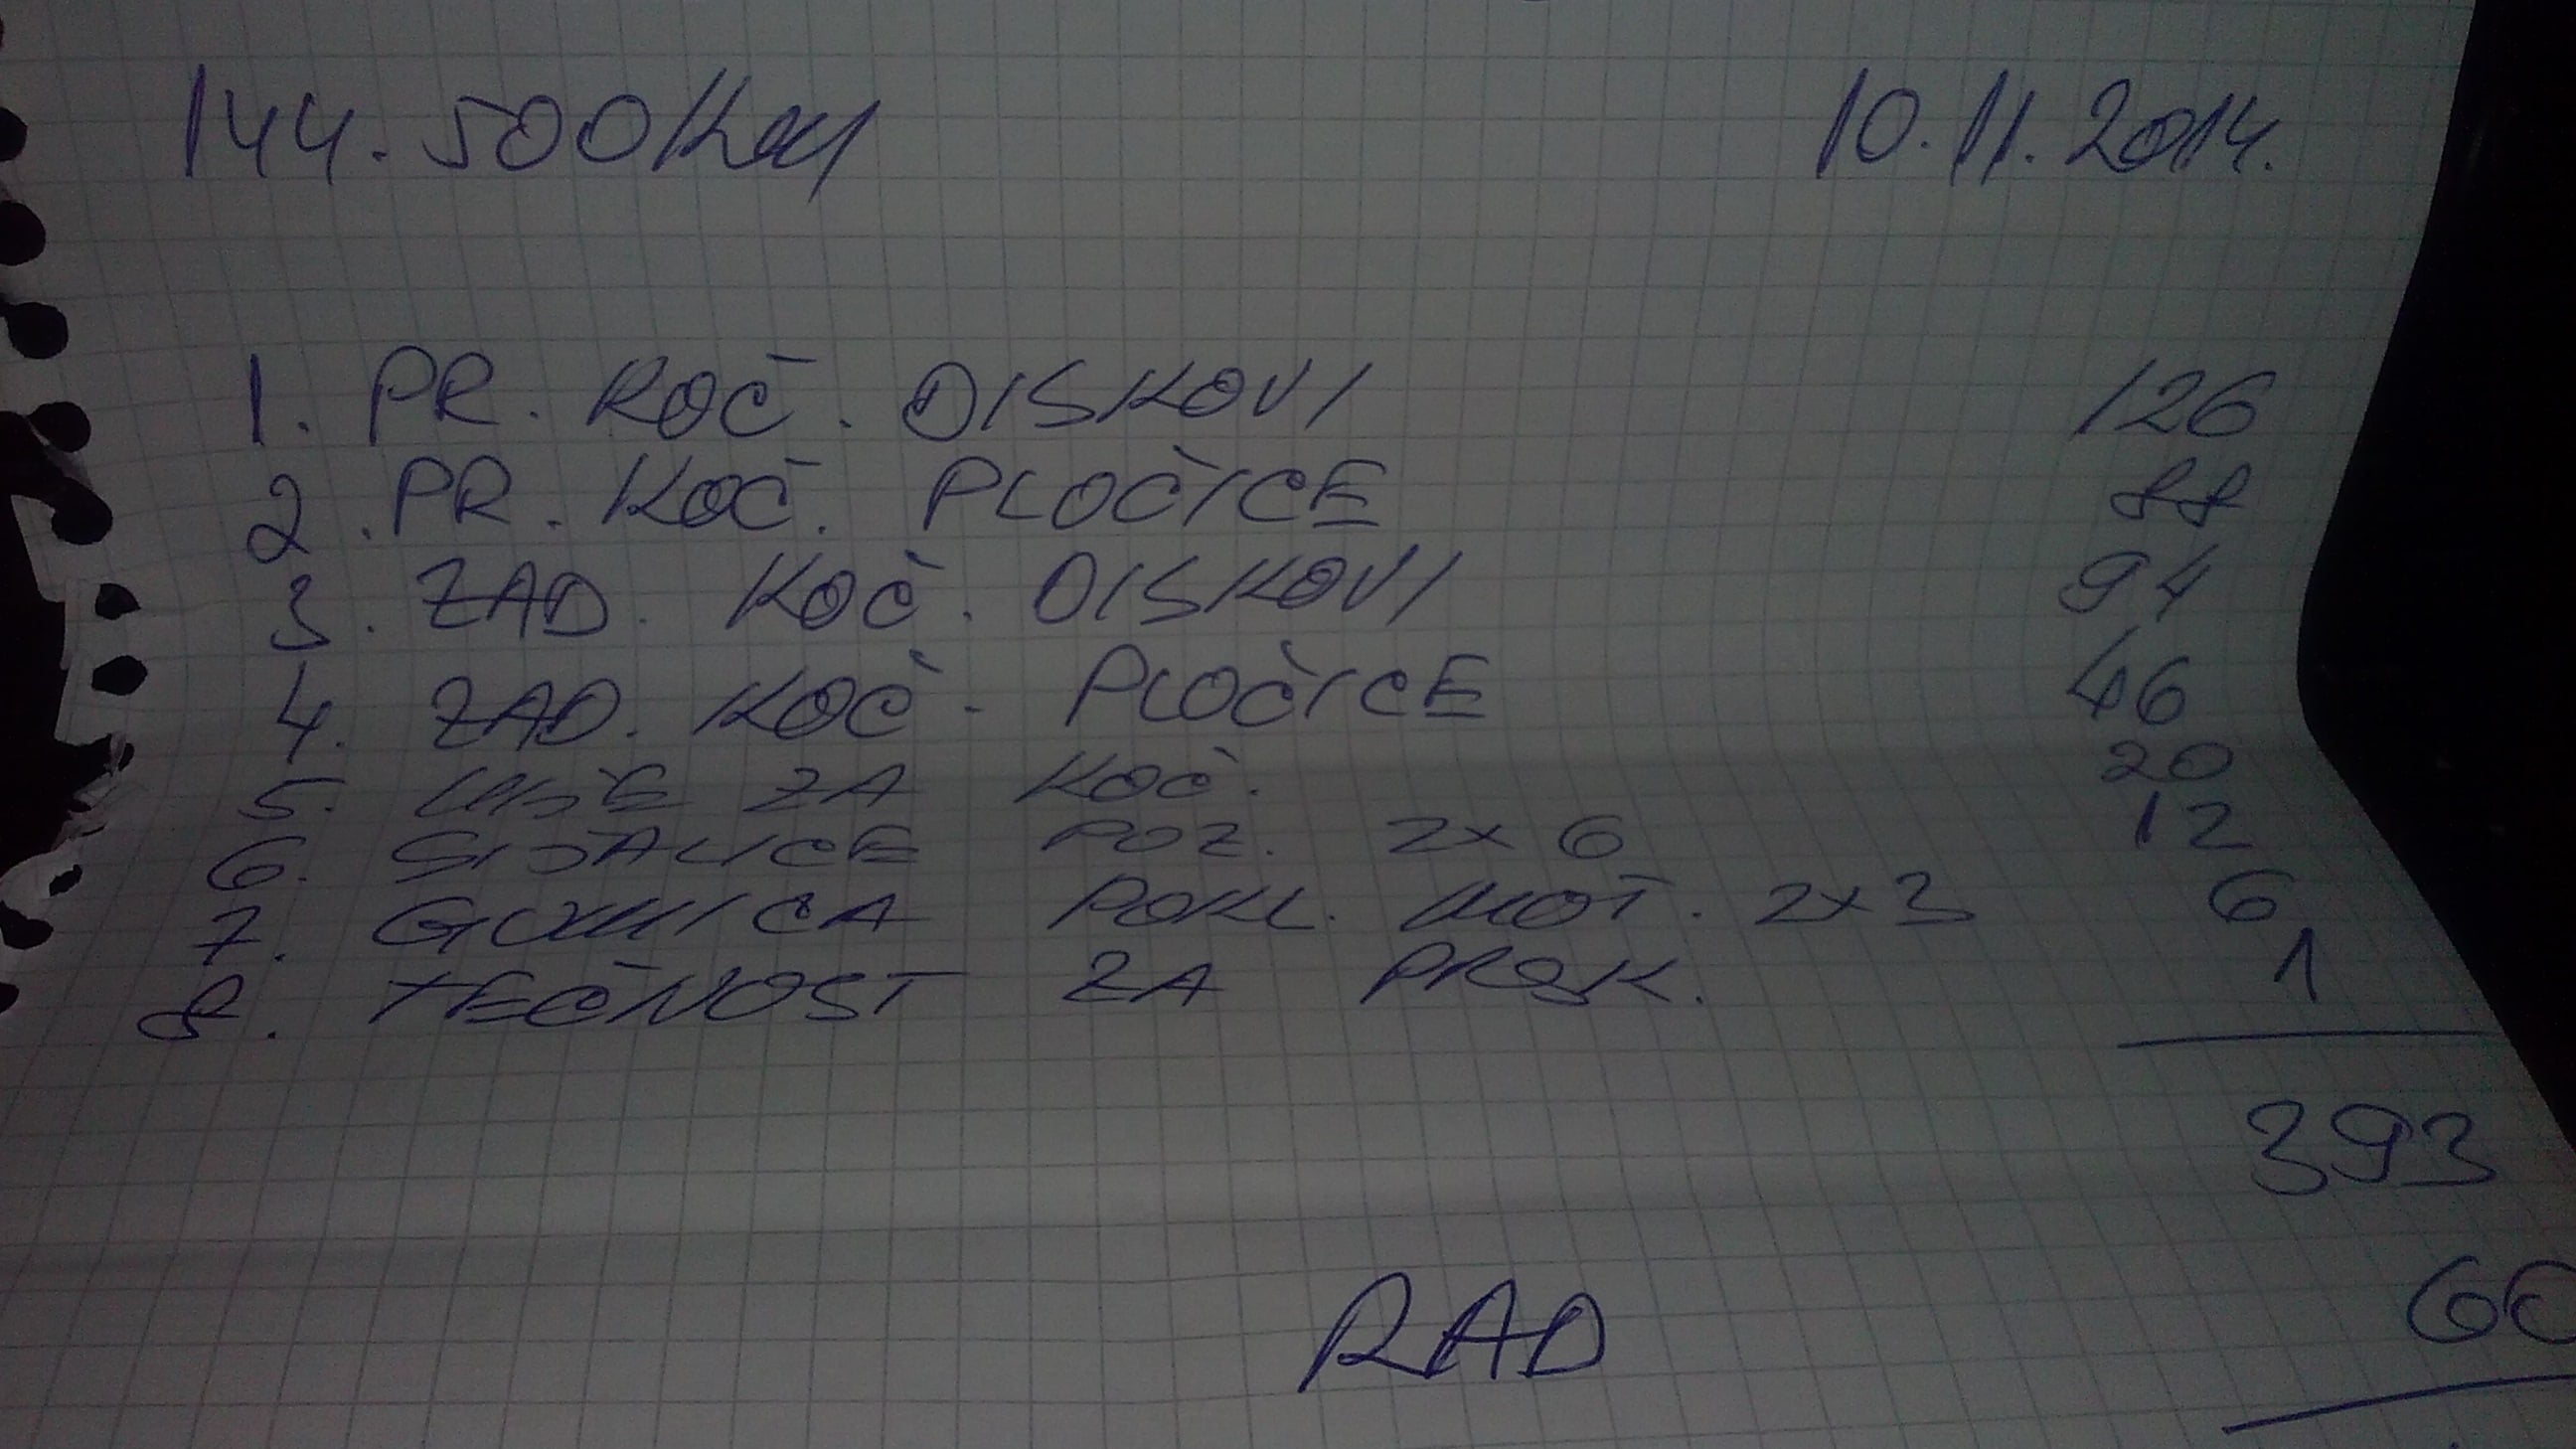 144.500 KM 10.11.2014.
1. PR. KOČ. DISKOVI 126
2. PR. KOČ. PLOČICE 88
3. ZAD. KOČ. DISKOVI 94
4. ZAD. KOČ. PLOČICE 46
5. ULJE ZA KOČ. 20
6. SIJALICE POZ. 2x6 12
7. GUMICA POKL. MOT. 2x3 6
8. TEČNOST ZA PRSK. 1
393
RAD 60